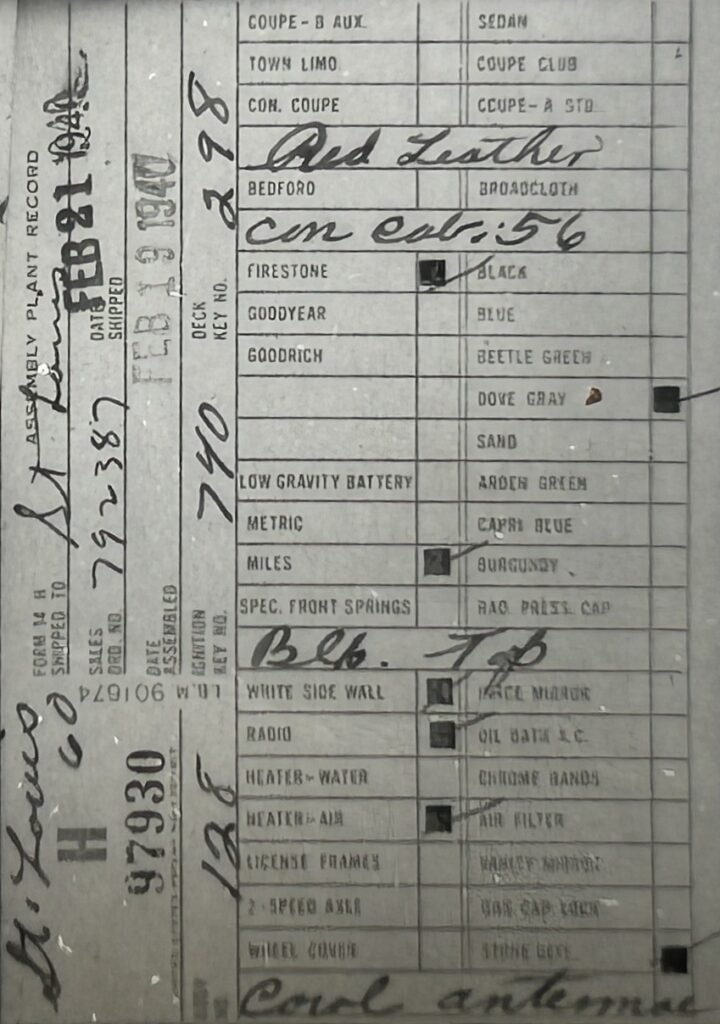 ASSEMBLY PLANT RECORD
FORM 14 H
SHIPPED TO St Louis
FEB 21 1940
SALES ORD. NO. 792387
DATE SHIPPED
DATE ASSEMBLED
FEB 19 1940
IGNITION KEY NO. 740
DECK KEY NO. 298
L.B.M 901674
St. Louis
H 60
97930
128
COUPE-B AUX. SEDAN
TOWN LIMO COUPE CLUB
CON. COUPE COUPE-A STD
Red Leather
BEDFORD BROADCLOTH
con cab. 56
FIRESTONE BLACK
GOODYEAR BLUE
GOODRICH BEETLE GREEN
DOVE GRAY
SAND
LOW GRAVITY BATTERY ARDEN GREEN
METRIC CAPRI BLUE
MILES BURGUNDY
SPEC. FRONT SPRINGS RAD. PRESS. CAP
Blk. Top
WHITE SIDE WALL MIRROR
RADIO OIL BATH A.C.
HEATER-WATER CHROME BANDS
HEATER-AIR AIR FILTER
LICENSE FRAMES VANITY MIRROR
2-SPEED AXLE GAS CAP LOCK
WHEEL COVER STONE DEFL.
Cowl antennae